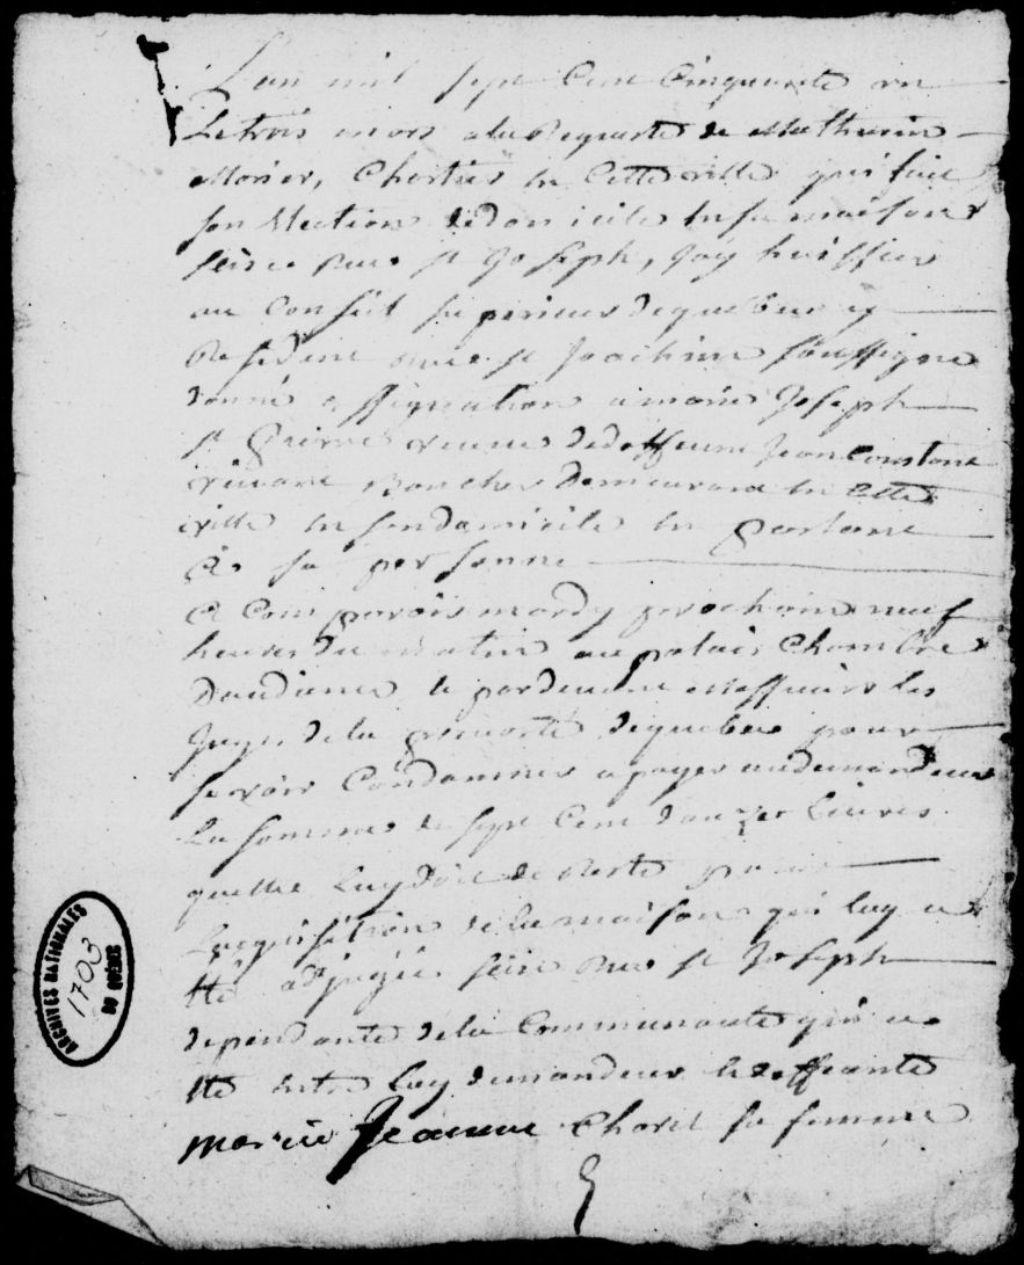 L'an mil sept Cent Cinquante un
Le trois mars a la Requeste de Mathurin
Morier, Chartier en Cette ville qui fait
son Election de domicile en sa maison
scise Rue st Joseph, Jay huissier
au Conseil superieur de quebec y
Residant rue st Joachim soussigné
donné assignation a marie Joseph
st pierre veuve de deffeunt Jean Constant
vivant Boucher demeurant en Cette
ville en son domicile en parlant
a sa personne
a Comparoir mardy prochain neuf
heures du matin au palais Chambre
daudiance et pardevant Messieurs les
Juges de la prevosté de quebec pour
se voir Condamner a payer au demandeur
La somme de sept Cent douze Livres
quelle luy doit de Reste pour
Lacquisition de la maison qui luy a
Eté adjugée scise Rue st Joseph
dependante de la Communauté qui a
Eté entre luy demandeur et deffeunte
marie Jeanne Charet sa femme
ARCHIVES NATIONALES
1703
DU QUÉBEC